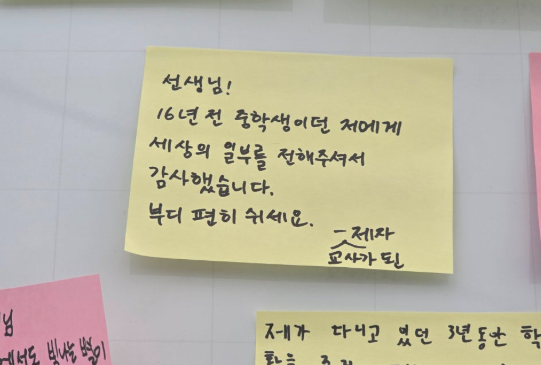 선생님!
16년 전 중학생이던 저에게
세상의 일부를 전해주셔서
감사했습니다.
부디 편히 쉬세요.
- 제자
교사가 된
님
제가 다니고 있던 3년동안 학